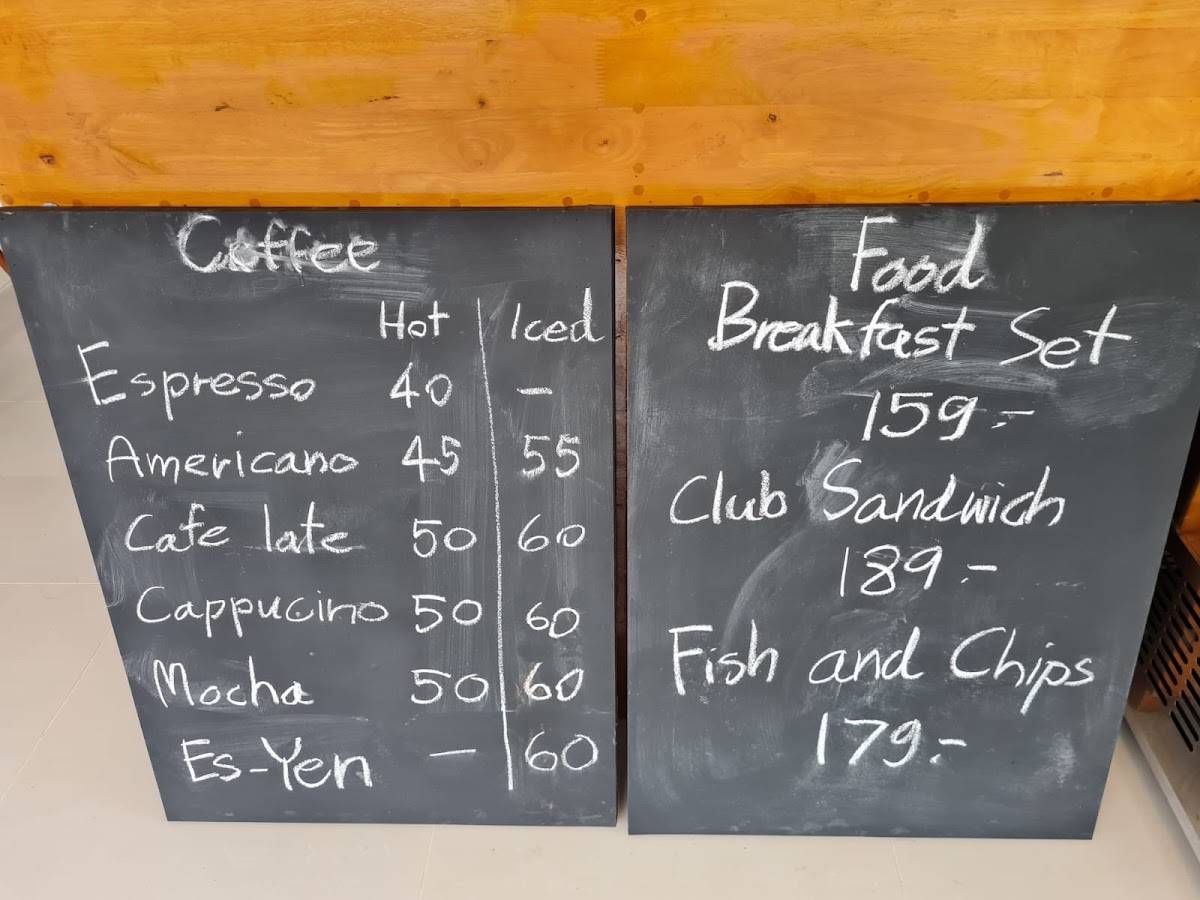 Coffee
Hot Iced
Espresso 40 –
Americano 45 55
Cafe late 50 60
Cappucino 50 60
Mocha 50 60
Es-Yen – 60
Food
Breakfast Set
159.-
Club Sandwich
189.-
Fish and Chips
179.-